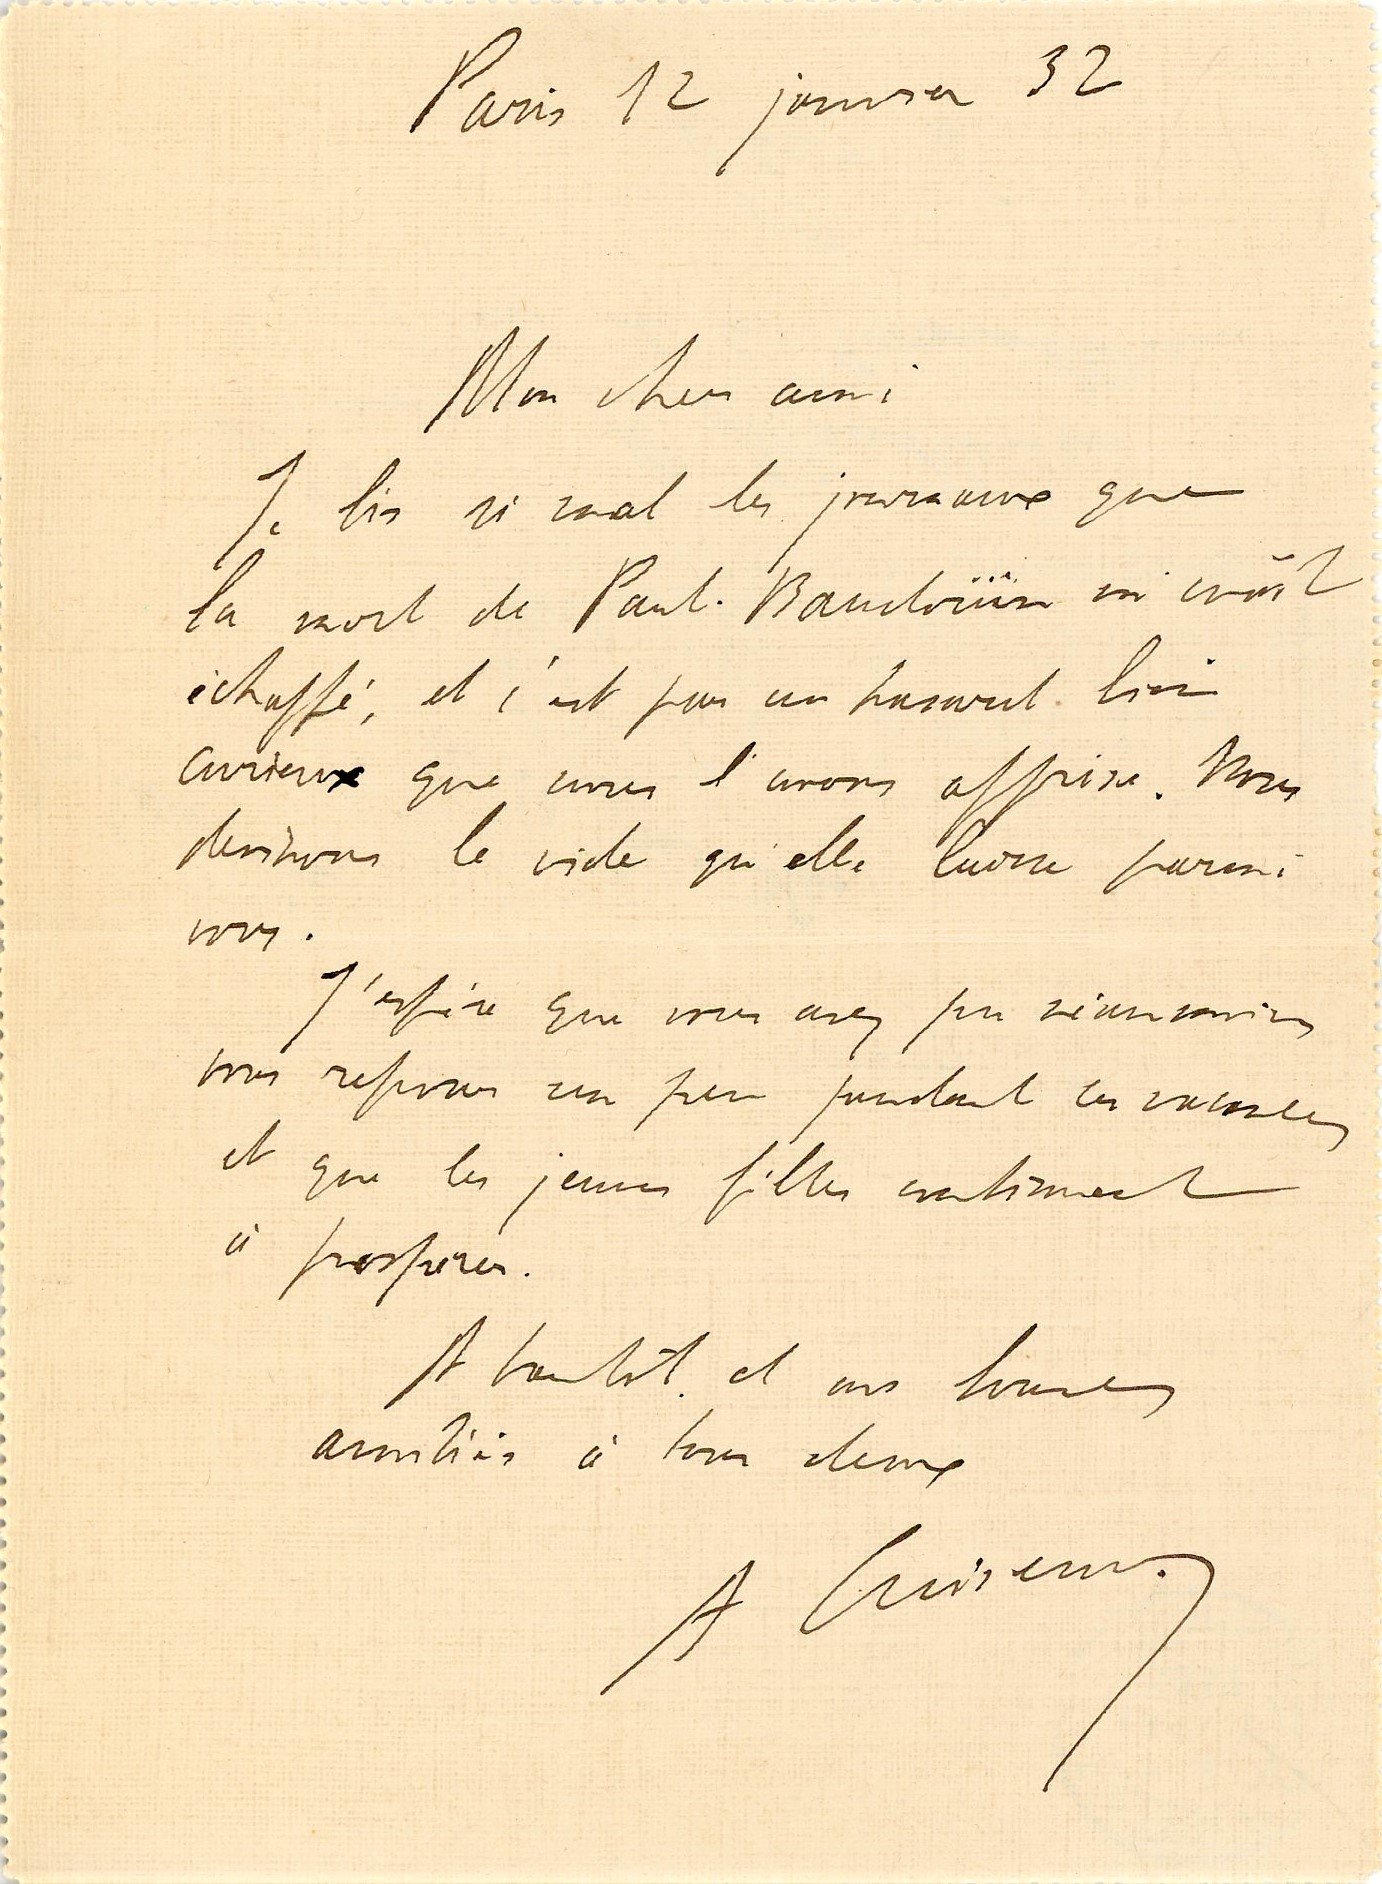 Paris 12 janvier 32
Mon cher ami
Je lis si mal les journaux que
la mort de Paul-Baudoüin m'avait
échappé, et c'est par un hasard bien
curieux que nous l'avons apprise. Nous
devinons le vide qu'elle laisse parmi
vous.
J'espère que vous avez pu néanmoins
vous reposer un peu pendant ces vacances
et que les jeunes filles continuent
à prospérer.
A bientôt et nos bonnes
amitiés à tous deux
A